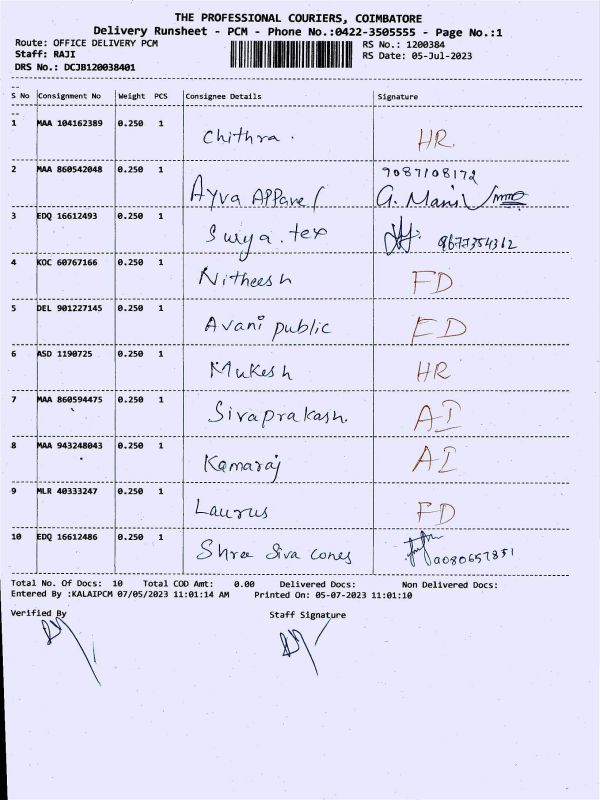 THE PROFESSIONAL COURIERS, COIMBATORE
Delivery Runsheet - PCM - Phone No.:0422-3505555 - Page No.:1
Route: OFFICE DELIVERY PCM RS No.: 1200384
Staff: RAJI RS Date: 05-Jul-2023
DRS No.: DCJB120038401
S No Consignment No Weight PCS Consignee Details Signature
1 MAA 104162389 0.250 1 Chithra. HR
2 MAA 860542048 0.250 1 Ayva Apparel 9087108172
G. Mani
3 EDQ 16612493 0.250 1 Surya. tex 9677354312
4 KOC 60767166 0.250 1 Nitheesh FD
5 DEL 901227145 0.250 1 Avani public FD
6 ASD 1190725 0.250 1 Mukesh HR
7 MAA 860594475 0.250 1 Sivaprakash. AI
8 MAA 943248043 0.250 1 Kamaraj AI
9 MLR 40333247 0.250 1 Laurus FD
10 EDQ 16612486 0.250 1 Shree Siva cones
Total No. Of Docs: 10 Total COD Amt: 0.00 Delivered Docs: Non Delivered Docs:
Entered By :KALAIPCM 07/05/2023 11:01:14 AM Printed On: 05-07-2023 11:01:10
Verified By Staff Signature